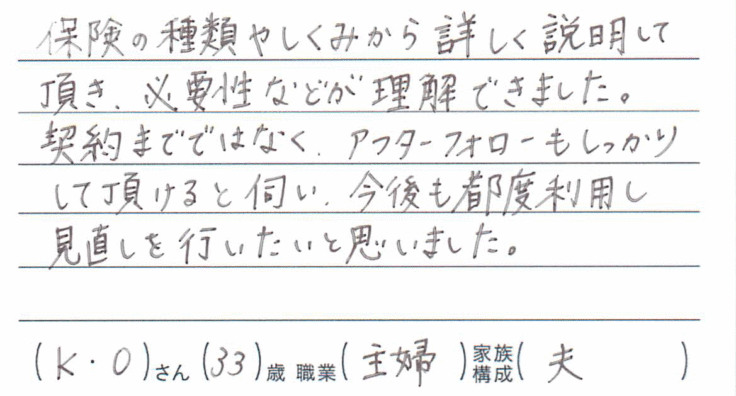 保険の種類やしくみから詳しく説明して
頂き、必要性などが理解できました。
契約まででではなく、アフターフォローもしっかり
して頂けると伺い、今後も都度利用し
見直しを行いたいと思いました。
(K・O)さん(33)歳 職業(主婦)家族構成(夫)